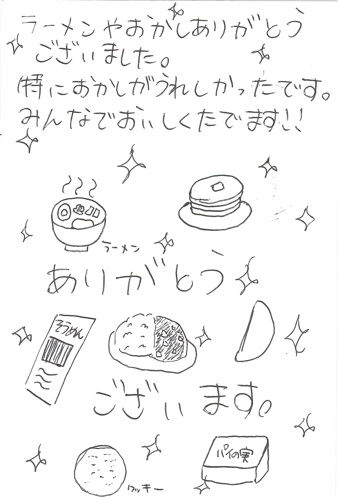 ラーメンやおかしありがとう
ございました。
特におかしがうれしかったです。
みんなでおいしくたでます!!
ラーメン
ありがとう
そうめん
ございます。
クッキー
パイの実